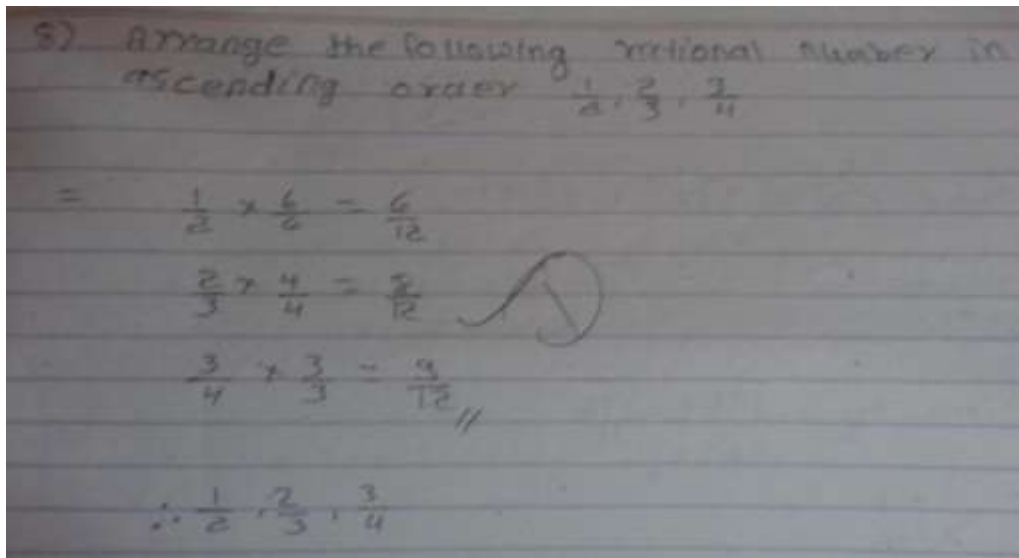 8) Arrange the following rational number in
ascending order 1/2, 2/3, 3/4
= 1/2 × 6/6 = 6/12
2/3 × 4/4 = 8/12
3/4 × 3/3 = 9/12 //
∴ 1/2, 2/3, 3/4